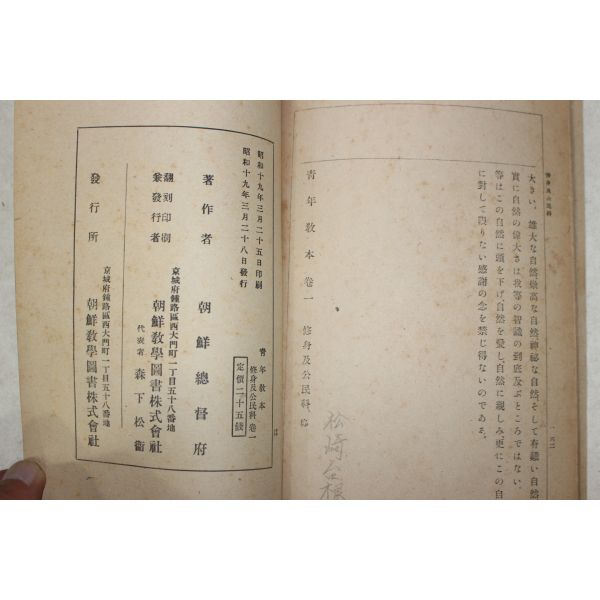 修身及公民科
一六二
大きい、雄大な自然、崇高な自然、神秘な自然、そして有難い自然
實に自然の偉大さは、我等の智識の到底及ぶところではない。我
等はこの自然に頭を下げ、自然を愛し、自然に親しみ、更にこの自
に對して限りない感謝の念を禁じ得ないのである。
青年敎本 卷一 修身及公民科 終
松崎
根
昭和十九年三月二十五日印刷
昭和十九年三月二十八日發行
靑年敎本
修身及公民科 卷一
定價二十五錢
著作者 朝鮮總督府
飜刻印刷
兼發行者
京城府鍾路區西大門町一丁目五十八番地
朝鮮敎學圖書株式會社
代表者 森下松衞
發行所
京城府鍾路區西大門町一丁目五十八番地
朝鮮敎學圖書株式會社